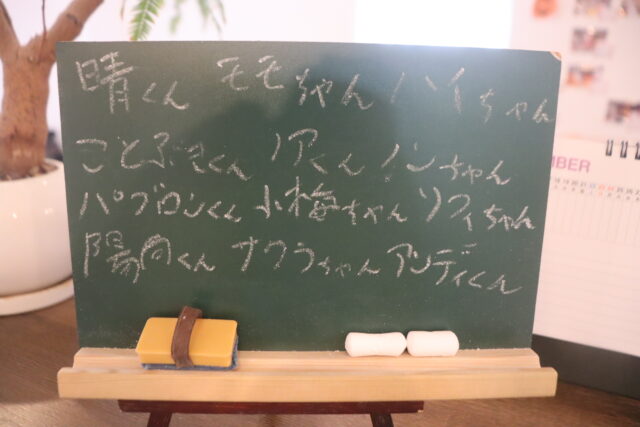 晴くん モモちゃん ハイちゃん
ことぶきくん ノアくん ノンちゃん
パブロンくん 小梅ちゃん ソフィちゃん
陽向くん サクラちゃん アンディくん
MBER